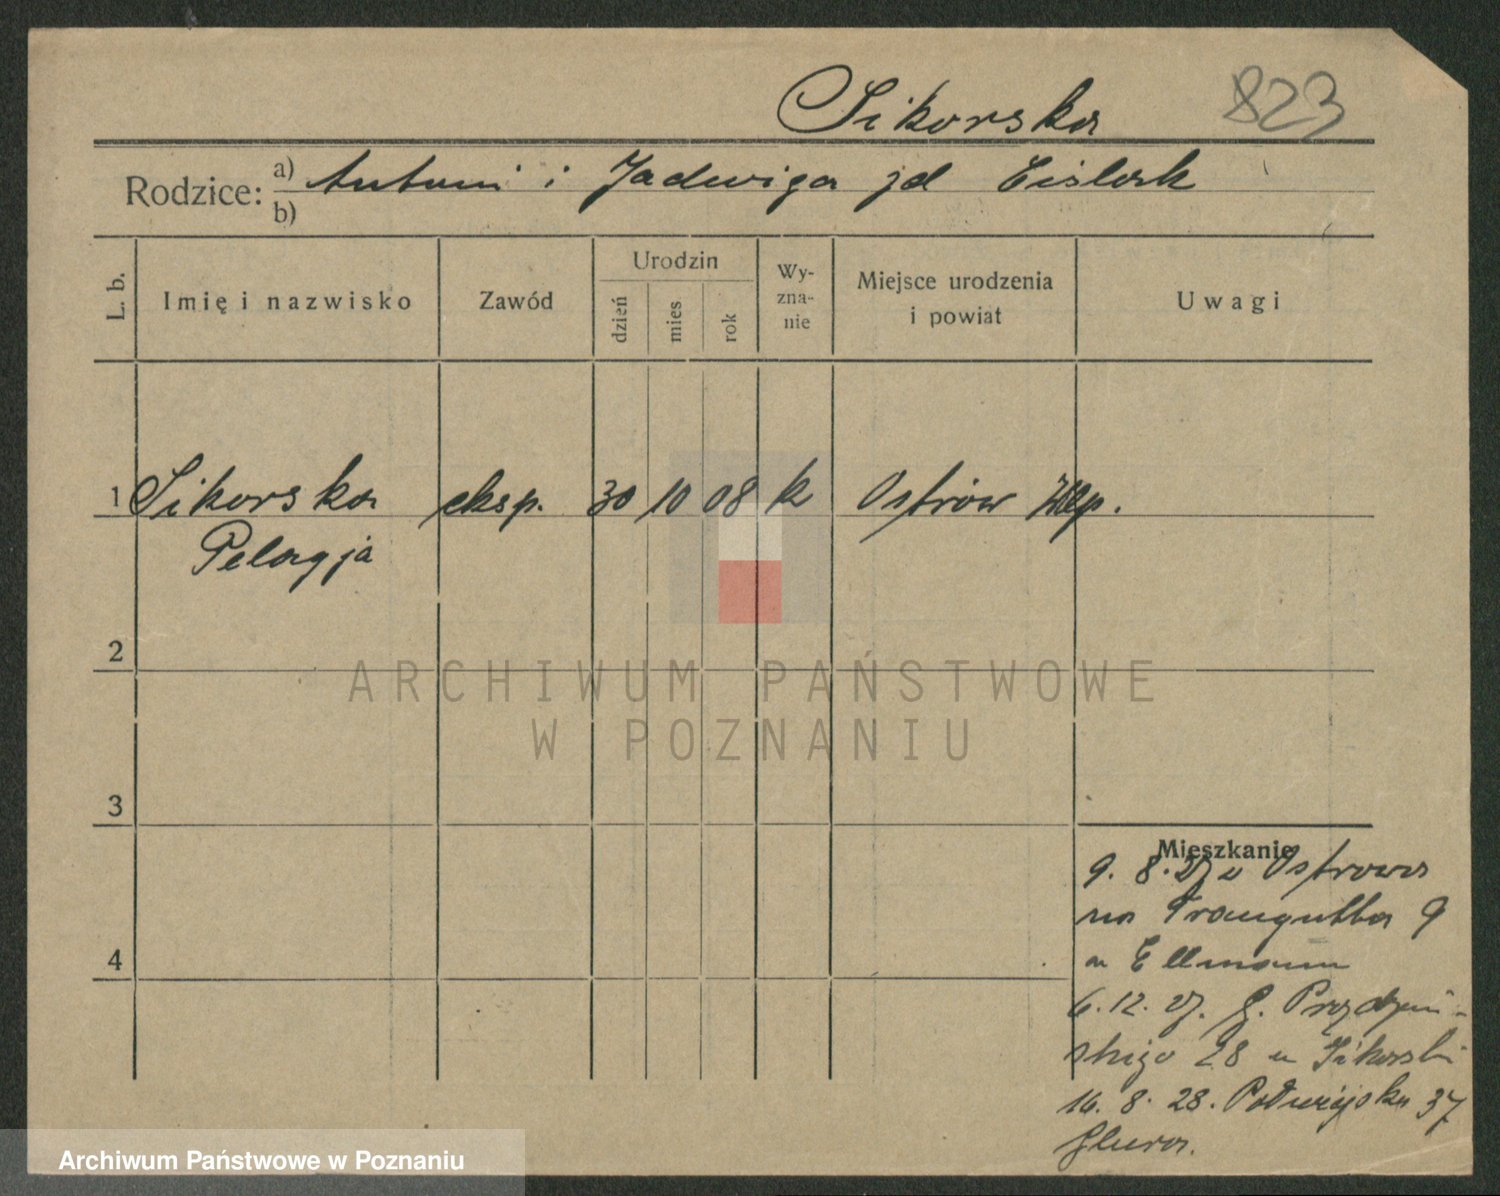 Sikorska 823
Rodzice: a) Antoni i Jadwiga jd Cieślak
b)
L. b. Imię i nazwisko Zawód Urodzin dzień mies rok Wy-zna-nie Miejsce urodzenia i powiat Uwagi
1 Sikorska eksp. 30 10 08 k Ostrów Wlkp.
Pelagja
2
ARCHIWUM PAŃSTWOWE
W POZNANIU
3
Mieszkanie
9. 8. 27 z Ostrowa
na Traugutta 9
u Ellmann
6. 12. 27. G.
28 u Sikorski
16. 8. 28. 37
4
Archiwum Państwowe w Poznaniu